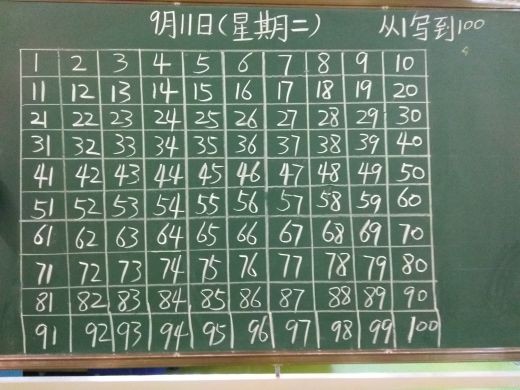 9月11日(星期二) 从1写到100
1 2 3 4 5 6 7 8 9 10
11 12 13 14 15 16 17 18 19 20
21 22 23 24 25 26 27 28 29 30
31 32 33 34 35 36 37 38 39 40
41 42 43 44 45 46 47 48 49 50
51 52 53 54 55 56 57 58 59 60
61 62 63 64 65 66 67 68 69 70
71 72 73 74 75 76 77 78 79 80
81 82 83 84 85 86 87 88 89 90
91 92 93 94 95 96 97 98 99 100